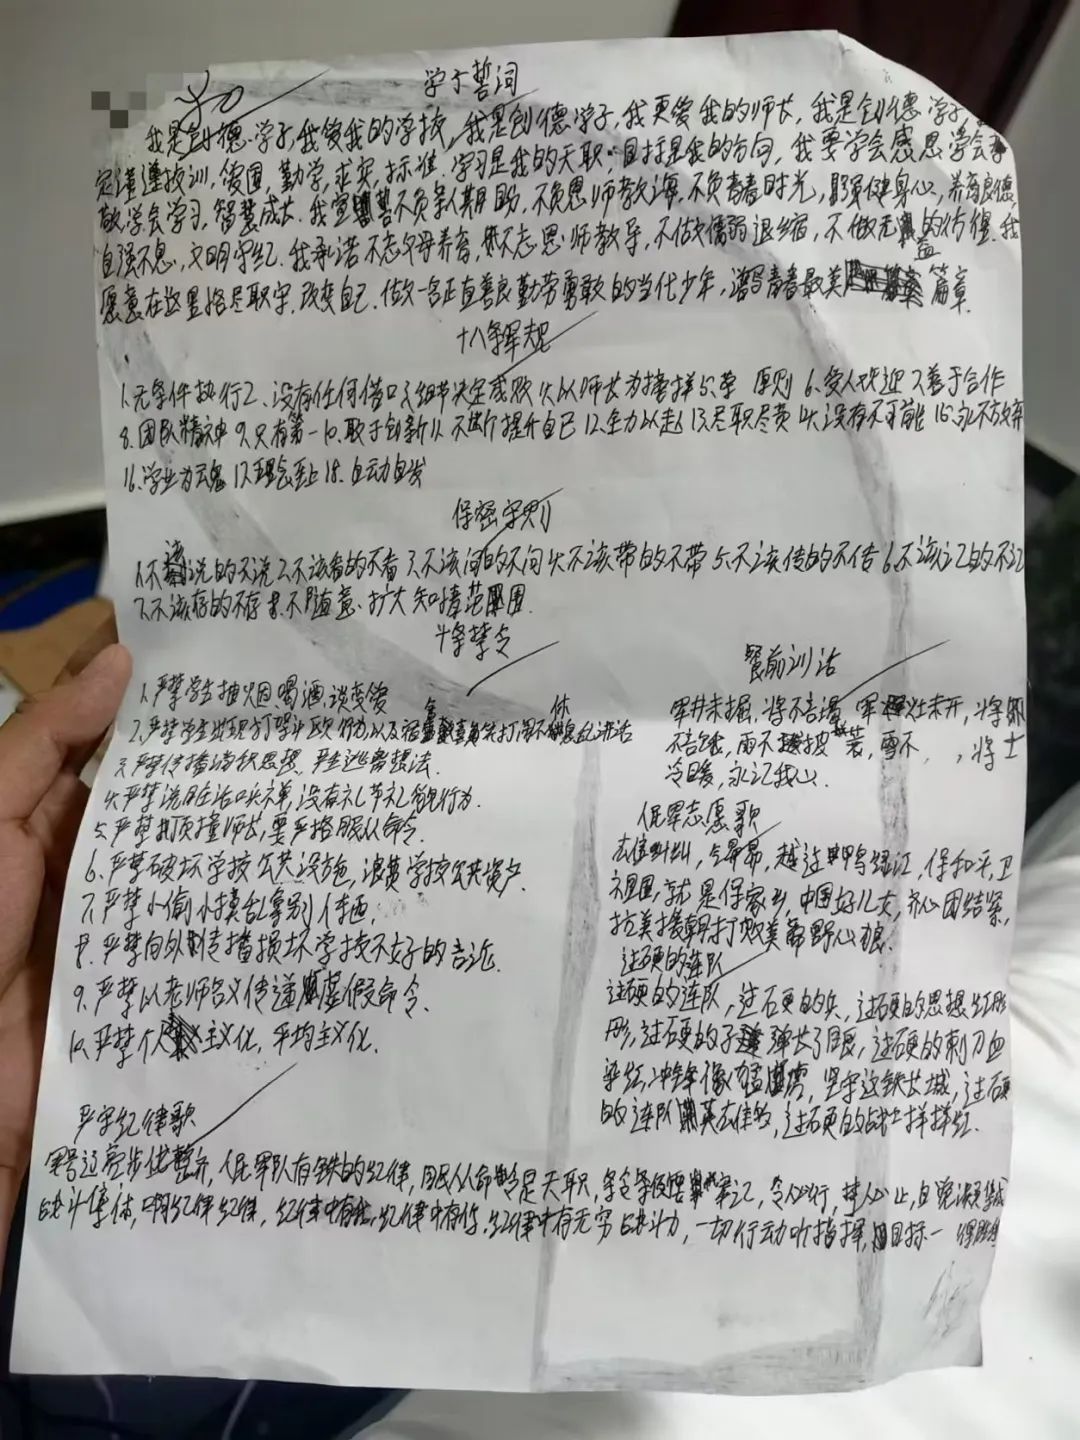 学子誓词
我是创德学子,我爱我的学校,我是创德学子,我更爱我的师长,我是创德学子,
定谨遵校训,爱国,勤学,求实,标准.学习是我的天职,目标是我的方向,我要学会感恩学会孝
敬,学会学习,智慧成长.我宣誓不负亲人期盼,不负恩师教诲,不负青春时光,强健身心,养育良德,
自强不息,文明守纪.我承诺不忘父母养育,不忘恩师教导,不做懦弱退缩,不做无益的彷徨.我
愿意在这里恪尽职守.改变自己.做一名正直善良勤劳勇敢的当代少年,谱写青春最美篇章.
十八条军规
1.无条件执行2.没有任何借口3.细节决定成败4.以师长为榜样5.荣 原则 6.受人欢迎 7.善于合作
8.团队精神 9.只有第一10.敢于创新11.不断提升自己 12.全力以赴 13.尽职尽责 14.没有不可能 15.永不放弃
16.学业为魂 17.理念至上18.自动自发
保密守则
1.不该说的不说2.不该看的不看 3.不该问的不问4.不该带的不带 5.不该传的不传 6.不该记的不记
7.不该存的不存 8.不随意扩大知情范围.
十条禁令
1.严禁学生抽烟,喝酒,谈恋爱
2.严禁学生出现打架斗殴行为以及
3.严禁传播消极思想,产生逃离想法.
4.严禁说脏话口头禅,没有礼节礼貌行为.
5.严禁顶撞师长,要严格服从命令.
6.严禁破坏学校公共设施,浪费学校公共资产.
7.严禁小偷小摸乱拿别人东西,
8.严禁向外传播损坏学校不好的言论.
9.严禁以老师名义传递虚假命令.
10.严禁个人主义化,平均主义化.
餐前训话
军井未掘,将不言渴,军灶未开,将
不言饿,雨不披蓑,雪不 ,将士
冷暖,永记我心
人民军志愿歌
雄赳赳,气昂昂,越过鸭绿江,保和平,卫
祖国,就是保家乡,中国好儿女,齐心团结紧,
抗美援朝打败美帝野心狼.
过硬的连队
过硬的连队,过硬的兵,过硬的思想红彤
彤,过硬的子弹长了眼,过硬的刺刀血
染红,冲锋像猛虎,坚守这铁长城,过硬
的连队英雄,过硬的战士样样红.
严守纪律歌
军号嘹亮步伐整齐,人民军队有铁的纪律,服从命令是天职,条令条例要牢记,令必行,禁必止,自觉凝集成
战斗集体,啊纪律纪律,纪律中有我,纪律中有你,纪律中有无穷战斗力,一切行动听指挥,目标一